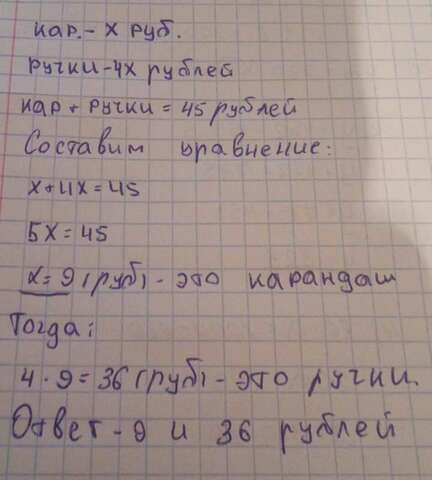 кар. - х руб.
ручки - 4х рублей
кар + ручки = 45 рублей
Составим уравнение:
х + 4х = 45
5х = 45
х = 9 (руб) - это карандаш
Тогда:
4 · 9 = 36 (руб) - это ручки.
Ответ - 9 и 36 рублей